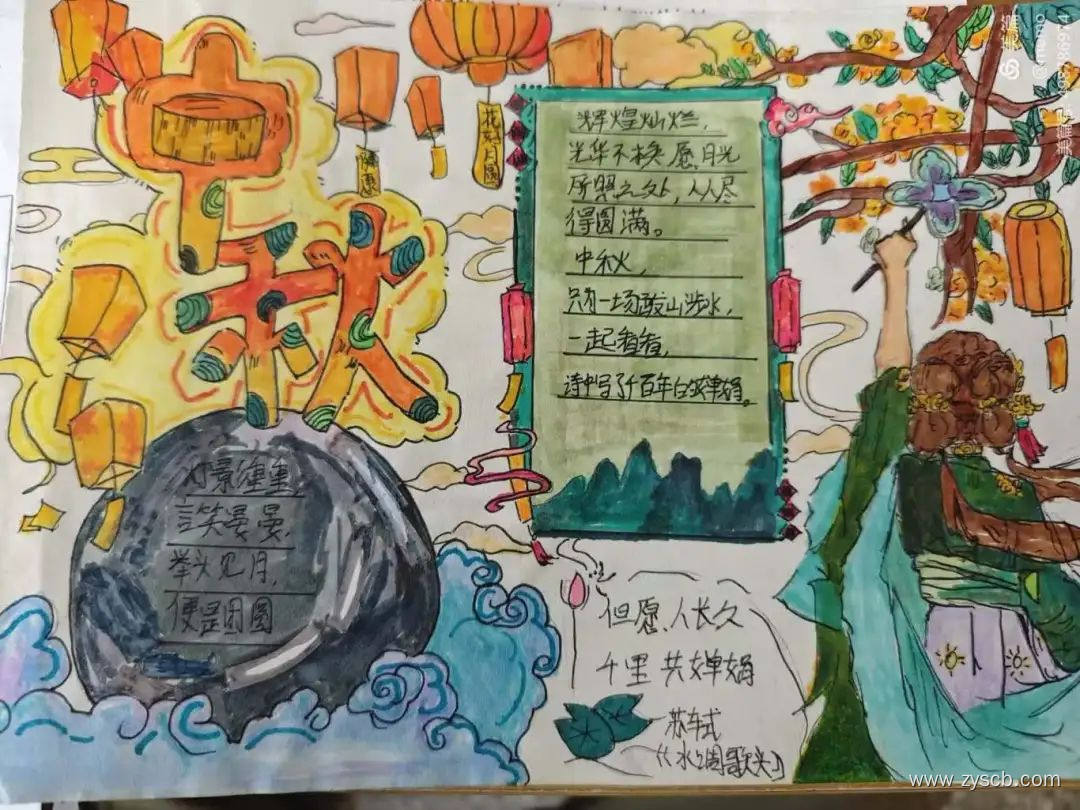 中秋
花好月圆
辉煌灿烂,
光华不换愿月光
所照之处,人人尽
得圆满。
中秋,
只有一场跋山涉水,
一起看看,
诗中写了千百年的婵娟。
灯景重重
言笑晏晏,
举头见月,
便是团圆
但愿人长久
千里共婵娟
苏轼
《水调歌头》
美篇
www.zyscb.com